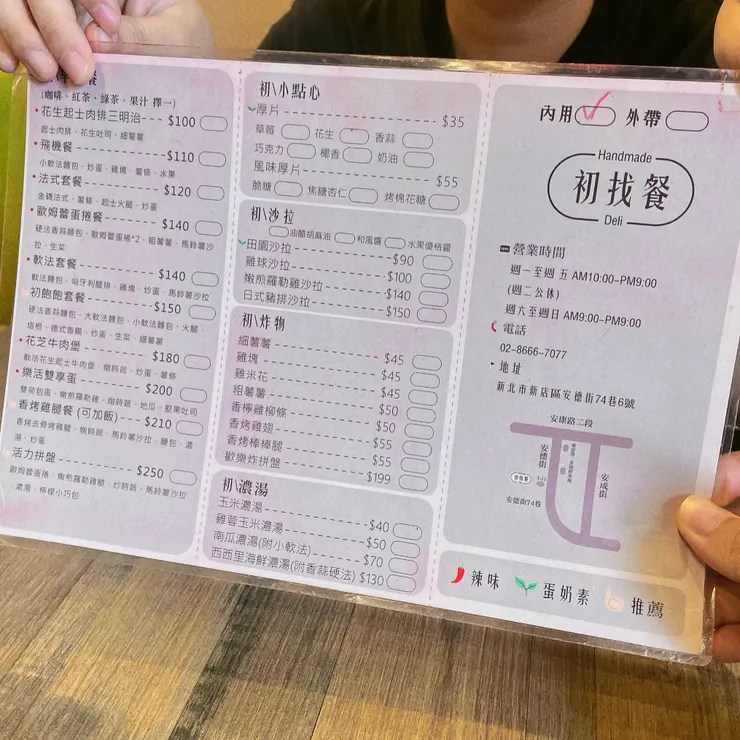 餐
(咖啡、紅茶、綠茶、果汁 擇一)
花生起士肉排三明治 $100
起士肉排、花生吐司、細薯薯
飛機餐 $110
小軟法麵包、炒蛋、雞塊、薯條、水果
法式套餐 $120
金磚法式、薯條、起士火腿、炒蛋
歐姆蕾蛋捲餐 $140
硬法香蒜麵包、歐姆蕾蛋捲*2、粗薯薯、馬鈴薯沙
拉、生菜
軟法套餐 $140
軟法麵包、匈牙利腿排、雞塊、炒蛋、馬鈴薯沙拉
初飽飽套餐 $150
硬法香蒜麵包、大軟法麵包、小軟法麵包、火腿、
培根、德式香腸、炒蛋、生菜、細薯薯
花芝牛肉堡 $180
軟法花生起士牛肉堡、燉時蔬、炒蛋、薯條
樂活雙享蛋 $200
雙荷包蛋、嫩煎羅勒雞腿、燉時蔬、地瓜、堅果吐司
香烤雞腿餐 (可加飯) $210
香烤去骨烤雞腿、燉時蔬、馬鈴薯沙拉、麵包、濃
湯、炒蛋
活力拼盤 $250
歐姆蕾蛋捲、嫩煎羅勒雞腿、炒時蔬、馬鈴薯沙拉
濃湯、檸檬小巧包
初\小點心
厚片 $35
草莓 花生 香蒜
巧克力 椰香 奶油
風味厚片 $55
脆糖 焦糖杏仁 烤棉花糖
初\沙拉
油醋胡麻油 和風醬 水果優格醬
田園沙拉 $90
雞球沙拉 $100
嫩煎羅勒雞沙拉 $140
日式豬排沙拉 $150
初\炸物
細薯薯 $45
雞塊 $45
雞米花 $45
粗薯薯 $50
香檸雞柳條 $50
香烤雞翅 $55
香烤棒棒腿 $55
歡樂炸拼盤 $199
初\濃湯
玉米濃湯 $40
雞蓉玉米濃湯 $50
南瓜濃湯(附小軟法) $70
西西里海鮮濃湯(附香蒜硬法) $130
內用 外帶
Handmade
初找餐
Deli
營業時間
週一至週五 AM10:00-PM9:00
(週二公休)
週六至週日 AM9:00-PM9:00
電話
02-8666-7077
地址
新北市新店區安德街74巷6號
安康路二段
安德街
安成街
安德街74巷
辣味 蛋奶素 推薦